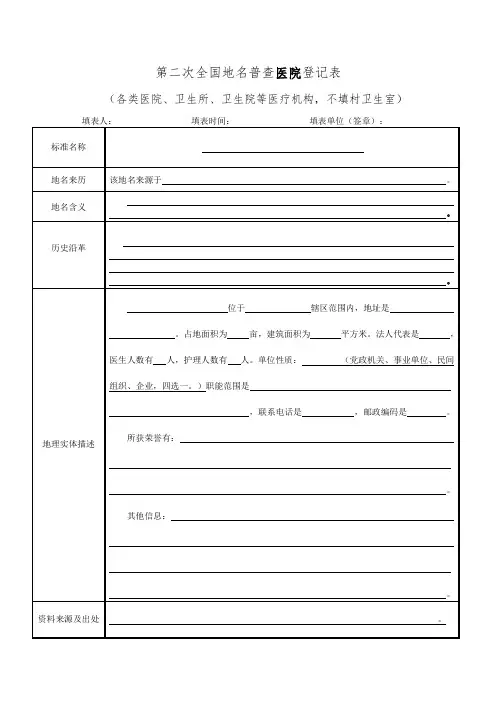 第二次全国地名普查医院登记表
（各类医院、卫生所、卫生院等医疗机构，不填村卫生室）
填表人： 填表时间： 填表单位（签章）：
标准名称
地名来历 该地名来源于 。
地名含义 。
历史沿革 。
地理实体描述
位于 辖区范围内，地址是
。占地面积为 亩，建筑面积为 平方米。法人代表是 ，
医生人数有 人，护理人数有 人。单位性质： （党政机关、事业单位、民间
组织、企业，四选一。）职能范围是
，联系电话是 ，邮政编码是 。
所获荣誉有：
。
其他信息：
。
资料来源及出处 。